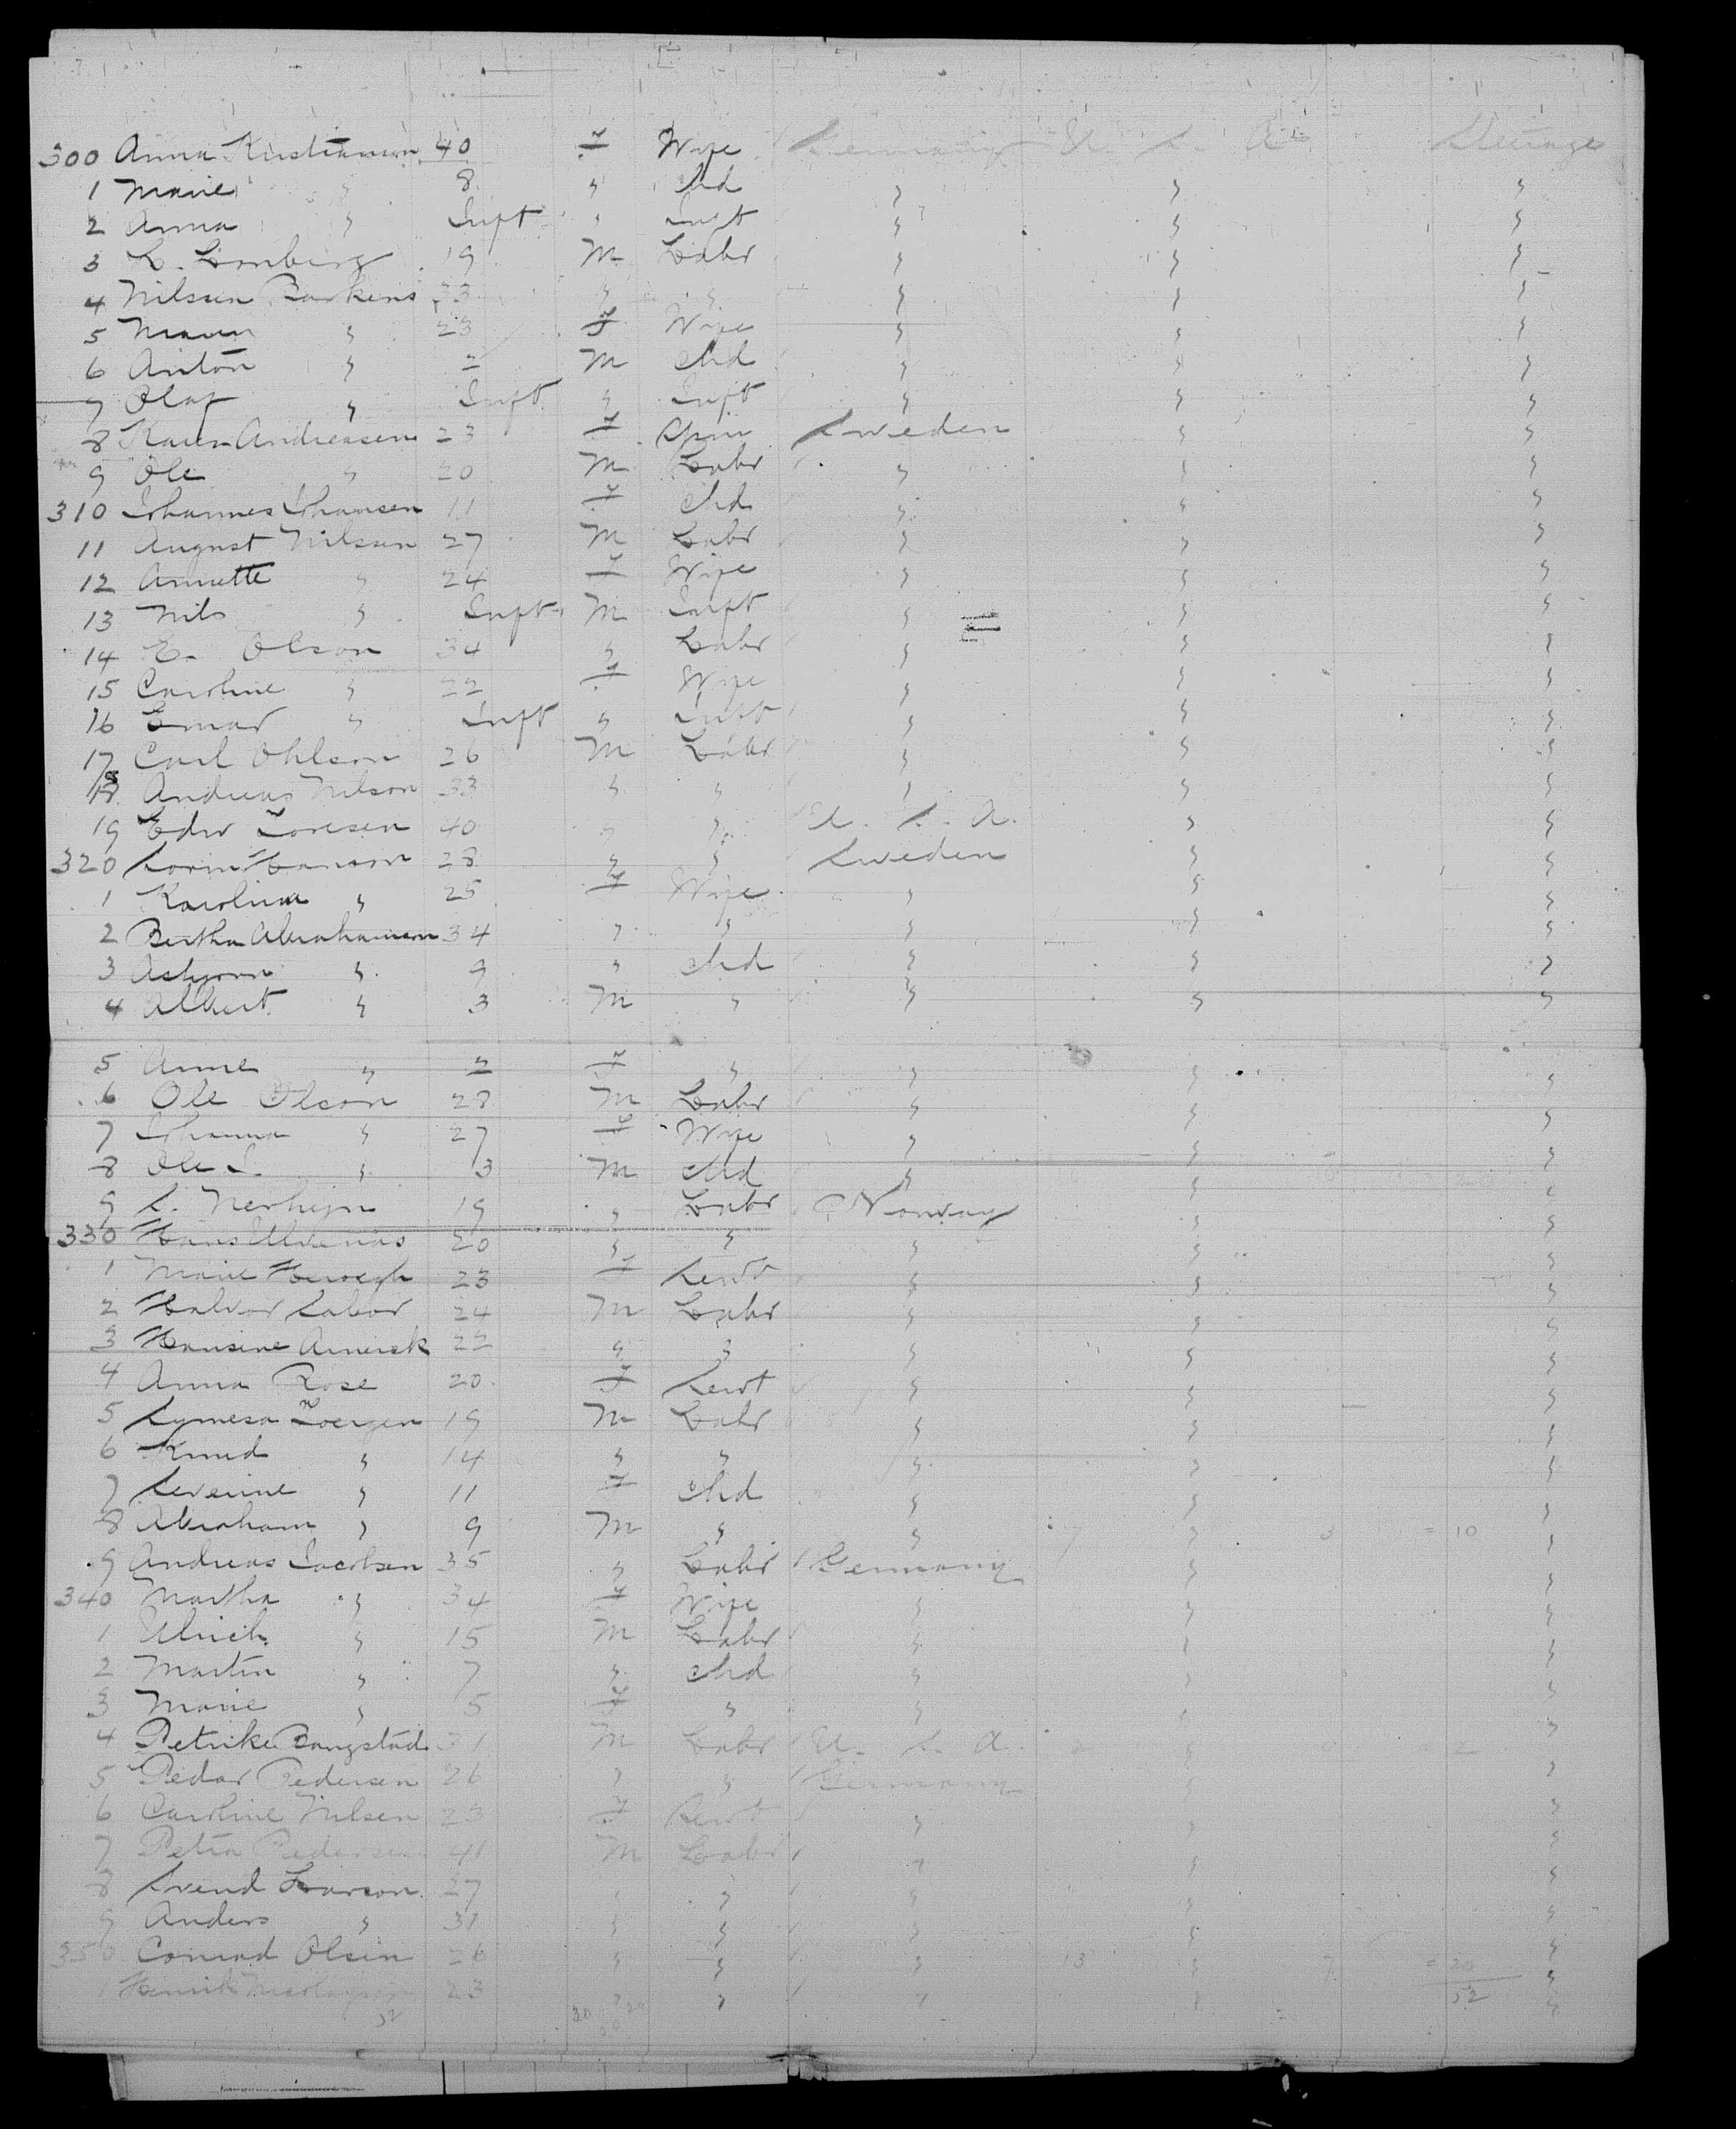 300 Anna Kristiansen 40 F Wife Germany U. S. A. Steerage
1 Marie " 8 " Chd " " "
2 Anna " Inft " Inft " " "
3 L. Lomberg 19 M Labr " " "
4 Nilssen Backens 33 " " " " "
5 Maren " 23 F Wife " " "
6 Anton " 2 M Chd " " "
7 Olaf " Inft " Inft " " "
8 Karen Andreasen 23 F Spin Sweden " "
9 Ole " 20 M Labr " " "
310 Johannes Johansen 11 F Chd " " "
11 August Nilssen 27 M Labr " " "
12 Annette " 24 F Wife " " "
13 Nils " Inft M Inft " " "
14 E. Olson 34 " Labr " " "
15 Caroline " 22 F Wife " " "
16 Emar " Inft " Inft " " "
17 Carl Ohlson 26 M Labr " " "
18 Andreas Nilson 33 " " " " "
19 Edw Toresen 40 " " U. S. A. " "
320 Sorin Hanson 28 " " Sweden " "
1 Karolina " 25 F Wife " " "
2 Bertha Abrahamson 34 " " " " "
3 " 9 " Chd " " "
4 Albert " 3 M " " " "
5 Anne " 2 F " " " "
6 Ole Olson 28 M Labr " " "
7 Johanna " 27 F Wife " " "
8 Ole J. " 3 M Chd " " "
9 S. 19 " Labr Norway " "
330 Hans 20 " " " " "
1 Marie 23 F Servt " " "
2 Halvor Labor 24 M Labr " " "
3 Hansine 22 " " " " "
4 Anna Rose 20 F Servt " " "
5 19 M Labr " " "
6 Knud " 14 " " " " "
7 Severine " 11 F Chd " " "
8 Abraham " 9 M " " 7 " 3 = 10 "
9 Andreas Jacobsen 35 " Labr Germany " "
340 Martha " 34 F Wife " " "
1 Ulrich " 15 M Labr " " "
2 Martin " 7 " Chd " " "
3 Marie " 5 F " " " "
4 Petrike Bangstad 31 M Labr U. S. A. " "
5 Pedar Pedersen 26 " " Germany " "
6 Caroline Nilsen 23 F Servt " " "
7 Petra Pedersen 41 M Labr " " "
8 Svend Larson 27 " " " " "
9 Anders " 31 " " " " "
350 Conrad Olsen 26 " " " 13 " 7 = 20 "
1 Henrik 23 " " " " 52 "
52